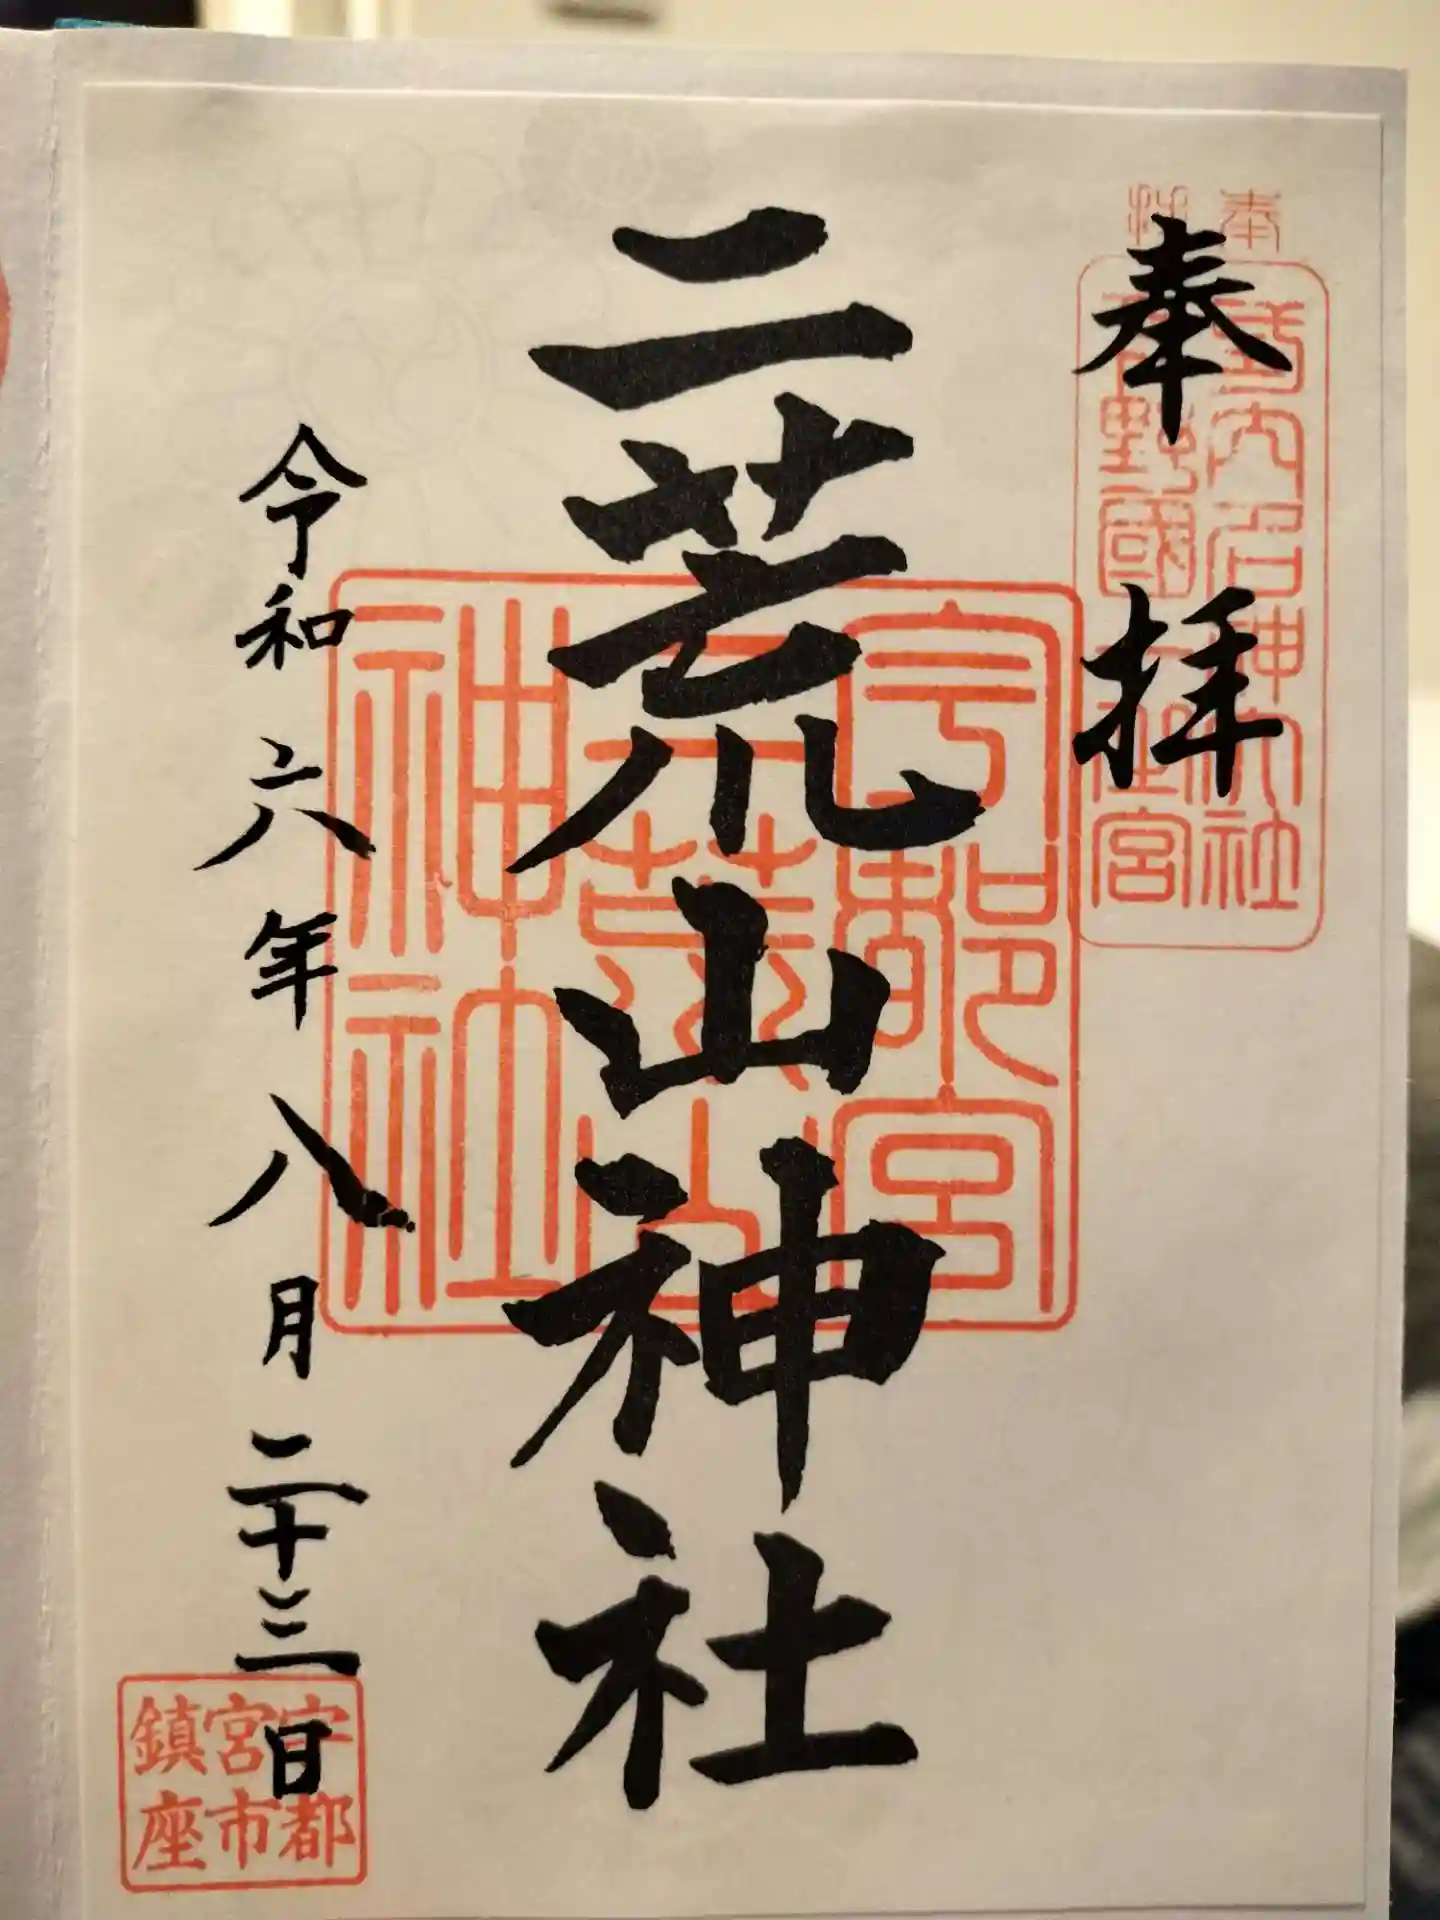 奉拝
式内名神大社
下野國一之宮
二荒山神社
宇都宮
二荒山
神社
令和六年八月二十三日
宇都
宮市
鎮座